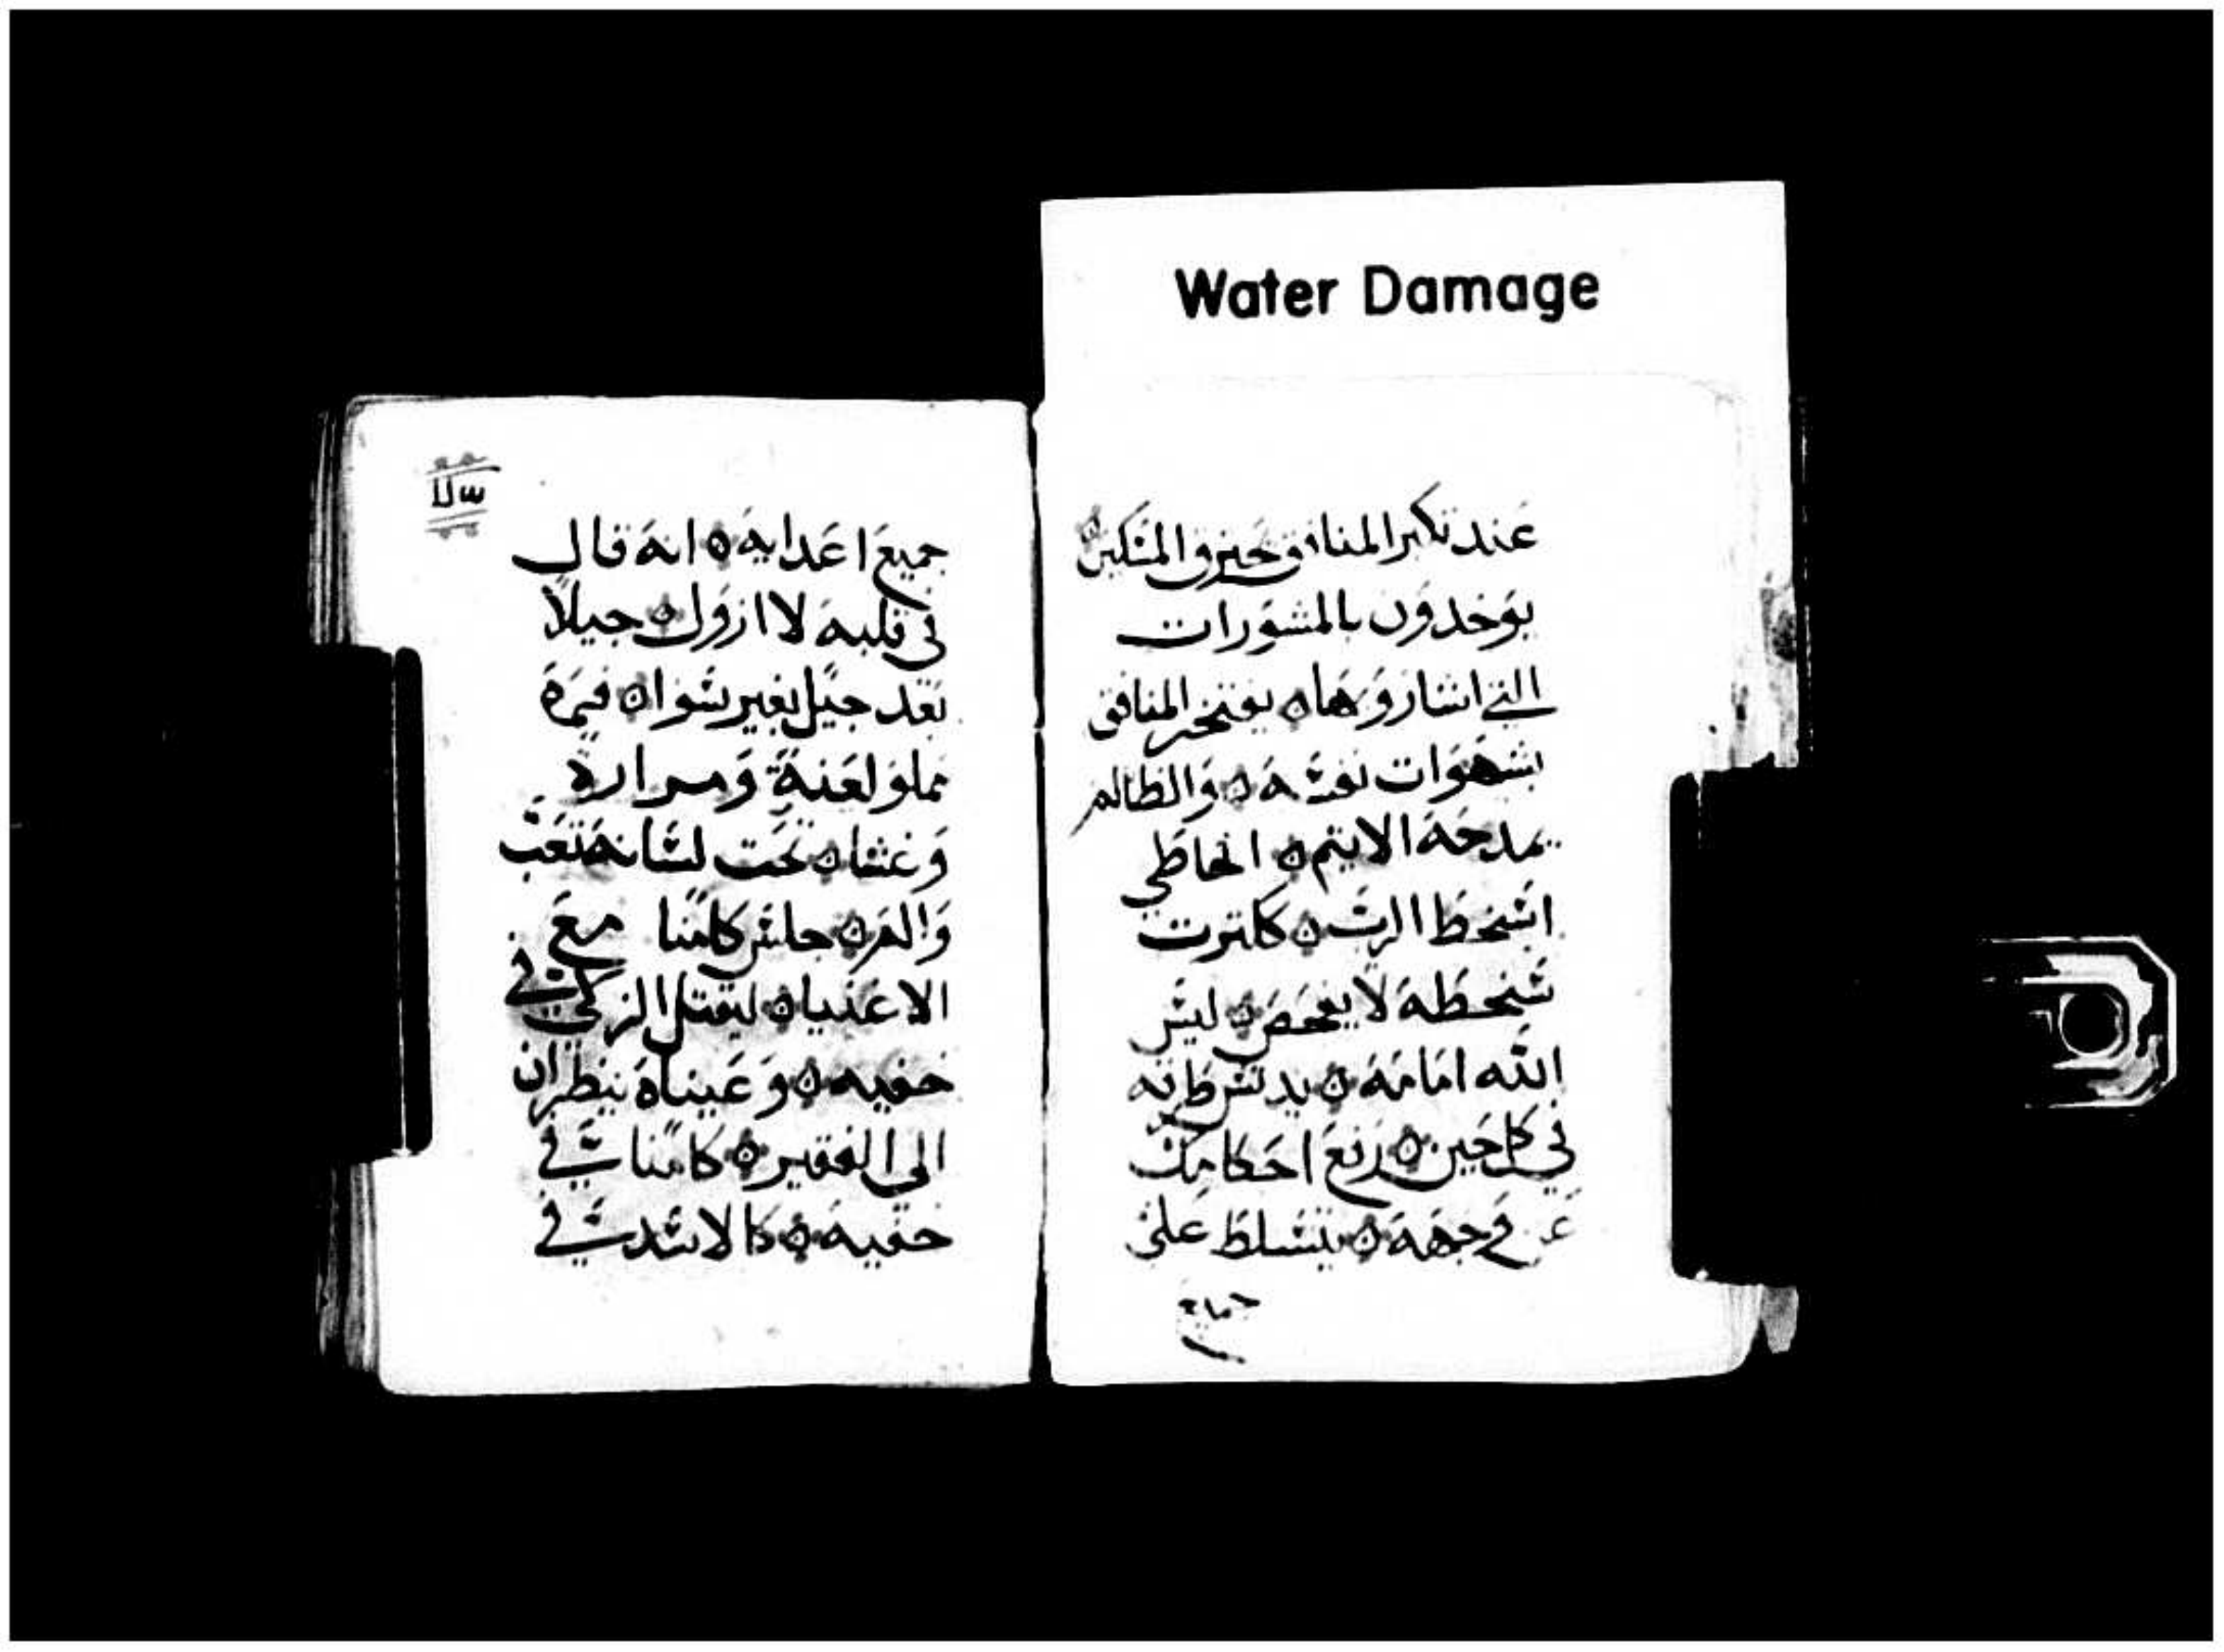 Water Damage
عند تكبر المنافق يحترق المسكين
يوخدون بالمشورات
التي اشاروَها يفتخر المنافق
بشهوات نفسه وَالظالم
يمدحه الايتم الخاطي
اسخط الرب ككترت
سخطه لا يفحص ليس
الله امامه يدنس طرقه
في كل حين رفع احكامك
عن وجهه يتسلط على
جماع
جميع اعدايه انه قال
في قلبه لا ازول جيلاً
بعد جيل بغير سوا فمه
مملو لعنة وَمرارة
وَغشا تحت لسانه تعب
وَالم جلس كامنا مع
الاغنيا ليقتل الزكي في
خفيه وَعيناه ينظران
الى الفقير كامنا في
خفيه كالاسد في